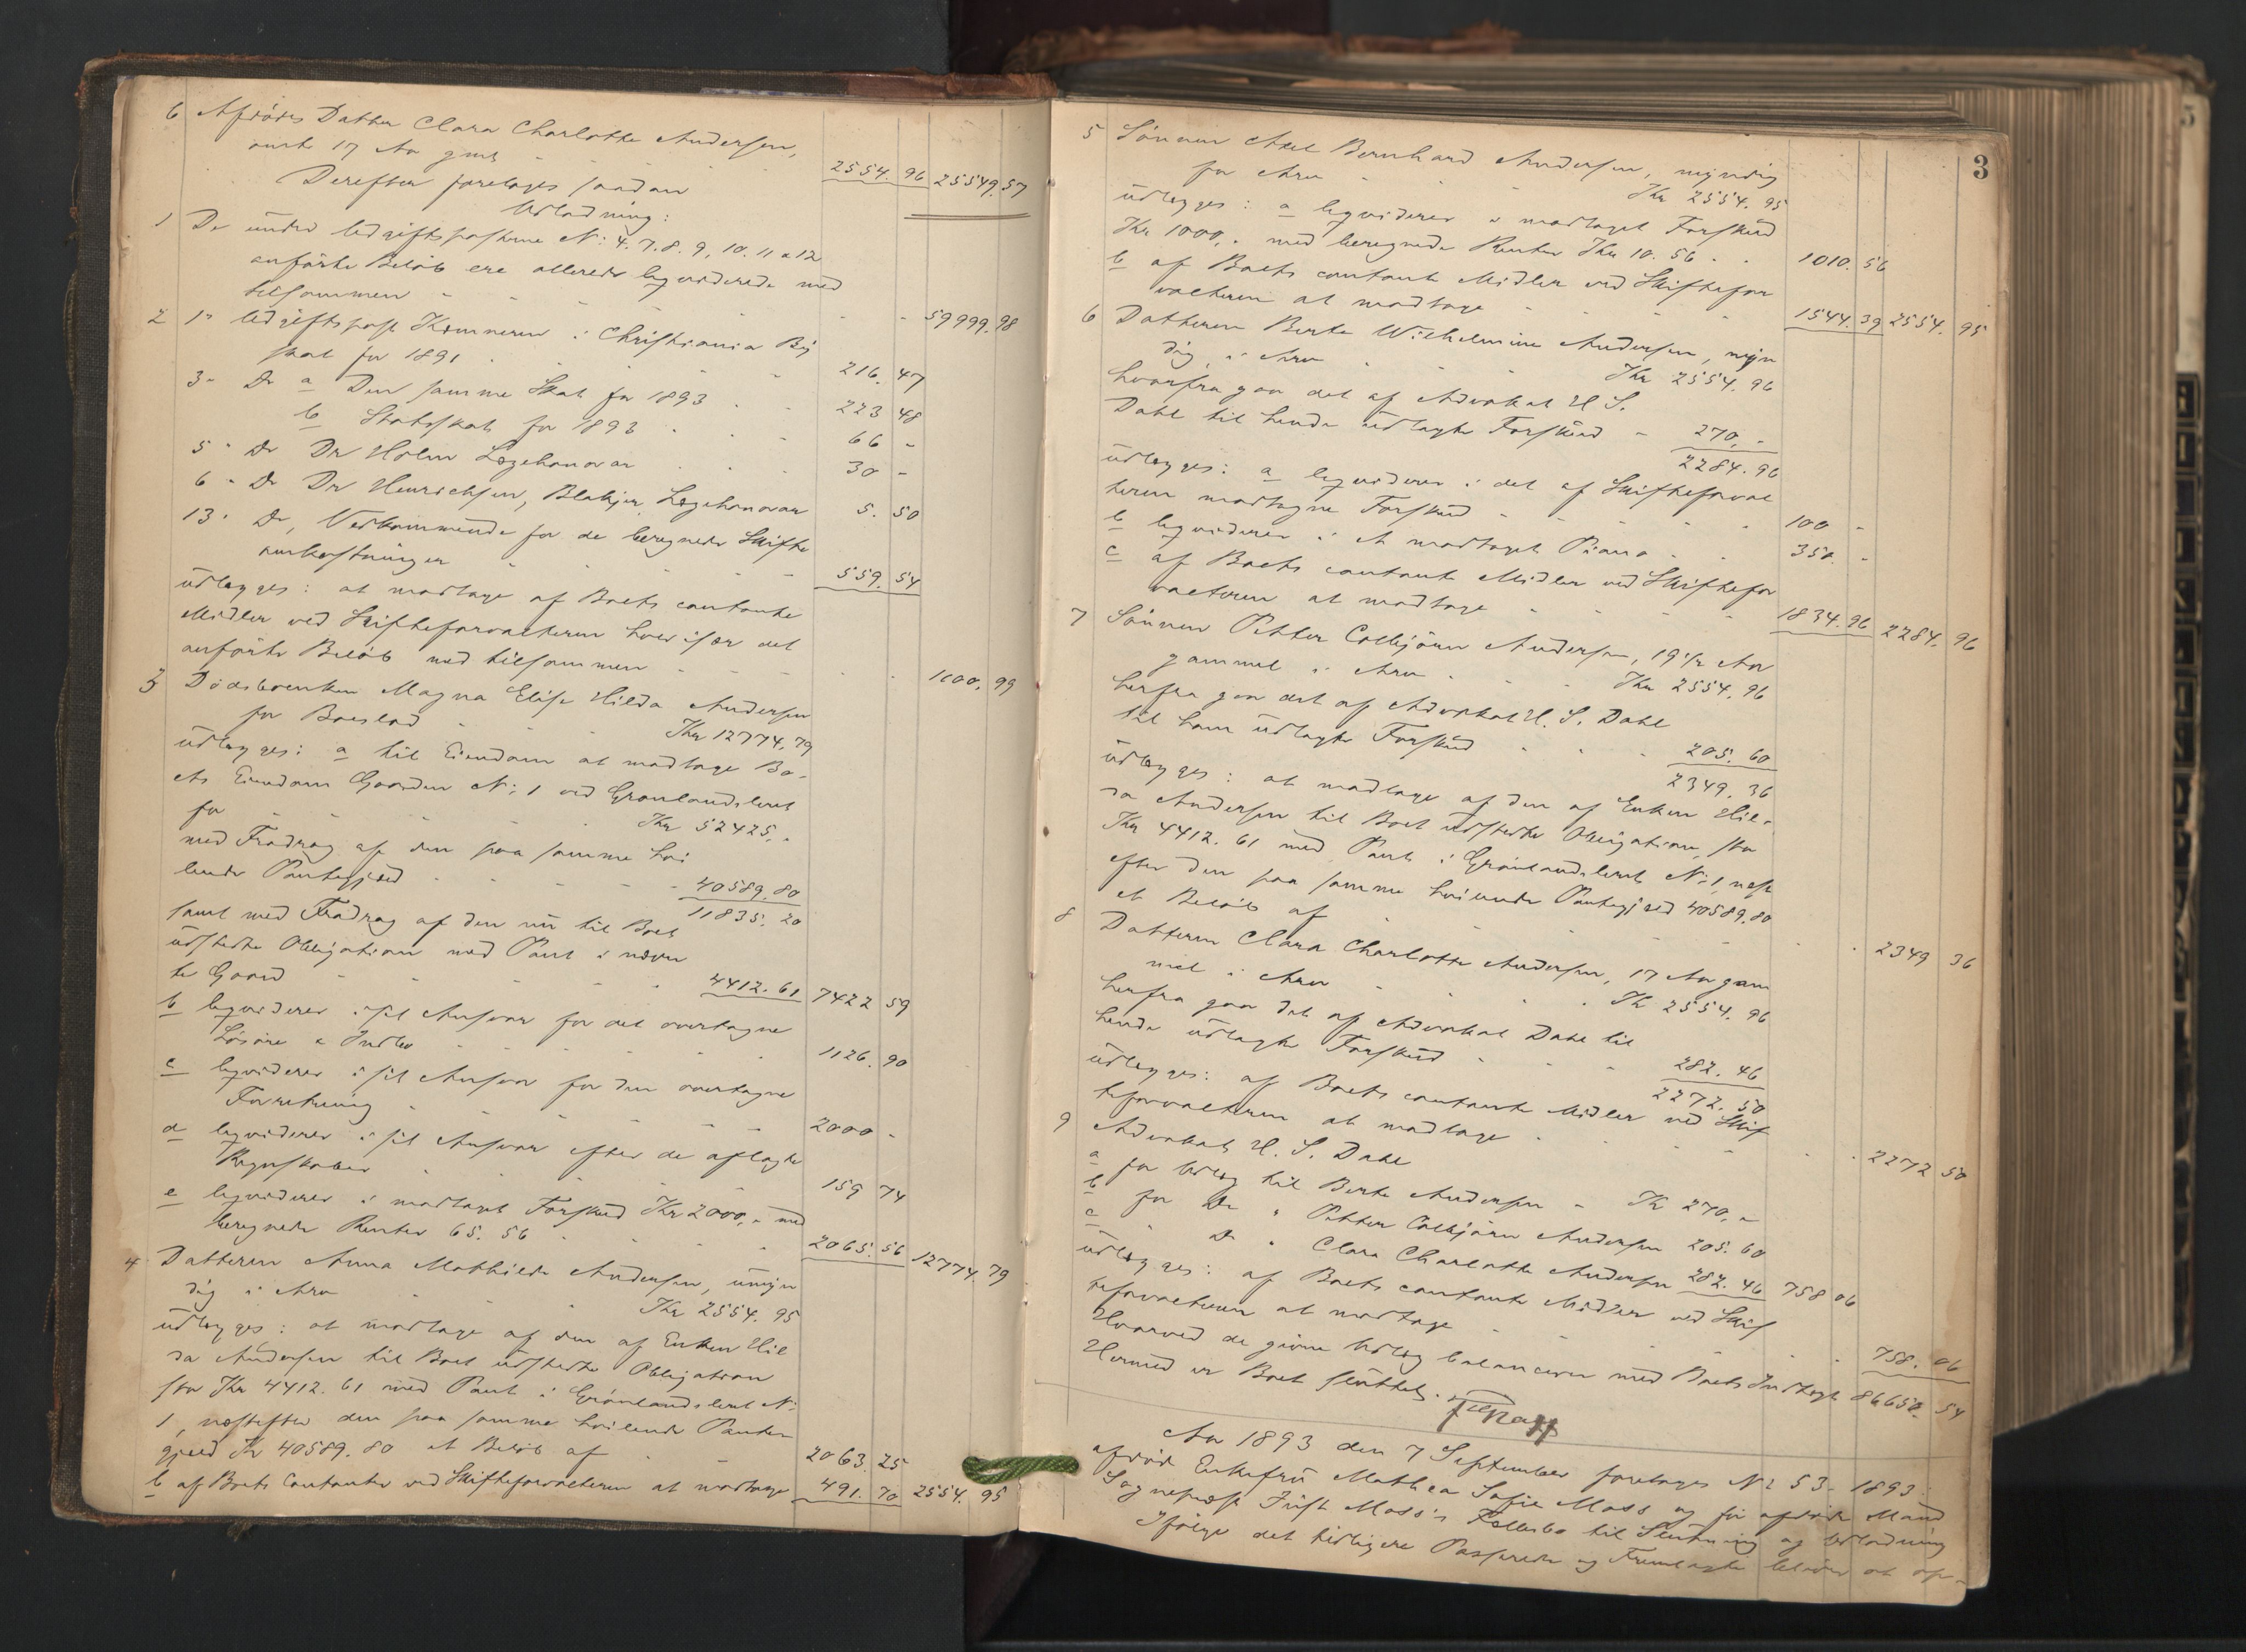 6 Afdødes Datter Clara Charlotte Andersen,
anslt 17 Aar gml - - - 2554. 96 25549. 57
Derefter foretages saadan
Udlodning:
1 De under Udgiftsposterne N: 4. 7. 8. 9, 10. 11 & 12
anførte Beløb ere allerede liqviderede med
tilsammen - - - - - 59999. 98
2 1" Udgiftspost Kæmneren i Christiania By
skat for 1891 - - - 216. 47
3" Do a Den samme Skat for 1893 - - 223 48
b Statsskat for 1893 - - - 66 -
5 " Do Dr Holm Lægehonorar - - - 30 -
6 " Do Dr Henrichsen, Blakjer, Lægehonorar 5. 50
13 " Do, Vedkommende for de beregnede Skifte
omkostninger - - - - 559. 54
udlægges: at modtage af Boets contante
Midler ved Skifteforvalteren hver især det
anførte Beløb med tilsammen - - - 1100. 99
3 Dødsboenken Magna Elise Hilda Andersen
for Boeslod - - Kr 12774. 79
udlægges: a til Eiendom at modtage Bo-
ets Eiendom Gaarden N: 1 ved Grønlandsleret
for - - - - Kr 52425. -
med Fradrag af den paa samme hvi
lende Pantegjæld - - - - 40589. 80
11835. 20
samt med Fradrag af den nu til Boet
udstedte Obligation med Pant i nævn
te Gaard - - - - 4412. 61 7422 59
b liqviderer i sit Ansvar for det overtagne
Løsøre & Indbo - - - - 1126. 90
c liqviderer i sit Ansvar for den overtagne
Forretning - - - - 2000 -
d liqviderer i sit Ansvar efter de aflagte
Regnskaber - - - - 159 74
e liqviderer i modtaget Forskud Kr 2000, - med
beregnede Renter 65. 56 - - - 2065. 56 12774. 79
4 Datteren Anna Mathilde Andersen, umyn
dig i Arv - - - Kr 2554. 95
udlægges: at modtage af den af Enken Hil
da Andersen til Boet udstedte Obligation
stor Kr 4412. 61 med Pant i Grønlandsleret N:
1, næstefter den paa samme hvilende Pante
gjæld Kr 40589. 80 et Beløb af - - 2063. 25
b af Boets Contanter ved Skifteforvalteren at modtage 491. 70 2554. 95
3
5 Sønnen Axel Bernhard Andersen, myndig
for Arv - - - Kr 2554. 95
udlægges: a liqviderer i modtaget Forskud
Kr 1000, - med beregnede Renter Kr 10. 56 - - 1010. 56
b af Boets contante Midler ved Skiftefor
valteren at modtage - - - 1544. 39 2554. 95
6 Datteren Berta Wilhelmine Andersen, myn
dig, i Arv - - - Kr 2554. 96
hvorfra gaar det af Advokat H. S.
Dahl til hende udlagte Forskud - 270. -
2284. 96
udlægges: a liqviderer i det af Skifteforval
teren modtagne Forskud - - - 100 -
b liqviderer i et modtaget Piano - - 350. -
c af Boets contante Midler ved Skiftefor
valteren at modtage - - - 1834. 96 2284. 96
7 Sønnen Petter Colbjørn Andersen, 19 1/2 Aar
gammel i Arv - - - Kr 2554. 96
herfra gaar det af Advokat H. S. Dahl
til ham udlagte Forskud - - - 205. 60
2349. 36
udlægges: at modtage af den af Enken Hil-
da Andersen til Boet udstedte Obligation, stor
Kr 4412. 61 med Pant i Grønlandsleret N: 1, næst
efter den paa samme hvilende Pantegjæld 40589. 80
et Beløb af - - - - - 2349 36
8 Datteren Clara Charlotte Andersen, 17 Aar gam
mel i Arv - - - Kr 2554. 96
herfra gaar det af Advokat Dahl til
hende udlagte Forskud - - - 282. 46
2272. 50
udlægges: af Boets contante Midler ved Skif
teforvalteren at modtage - - - - 2272 50
9 Advokat H. S. Dahl
a for Udlæg til Berta Andersen - Kr 270, -
b for Do " Petter Colbjørn Andersen 205. 60
c " Do " Clara Charlotte Andersen 282. 46 758 06
udlægges: af Boets contante Midler ved Skif
teforvalteren at modtage - - - - 758. 06
Hvorved de givne Udlæg balancerer med Boets Indtægt 86650. 54
Hermed er Boet sluttet.
Aar 1893 den 7 September foretages N: 53 - 1893
afdøde Enkefru Mathea Sofie Moss og før afdøde Mand
Sogneprest Just Moss's Fællesbo til Slutning og Udlodning
Ifølge det tidligere Passerede og Fremlagte bliver at op-